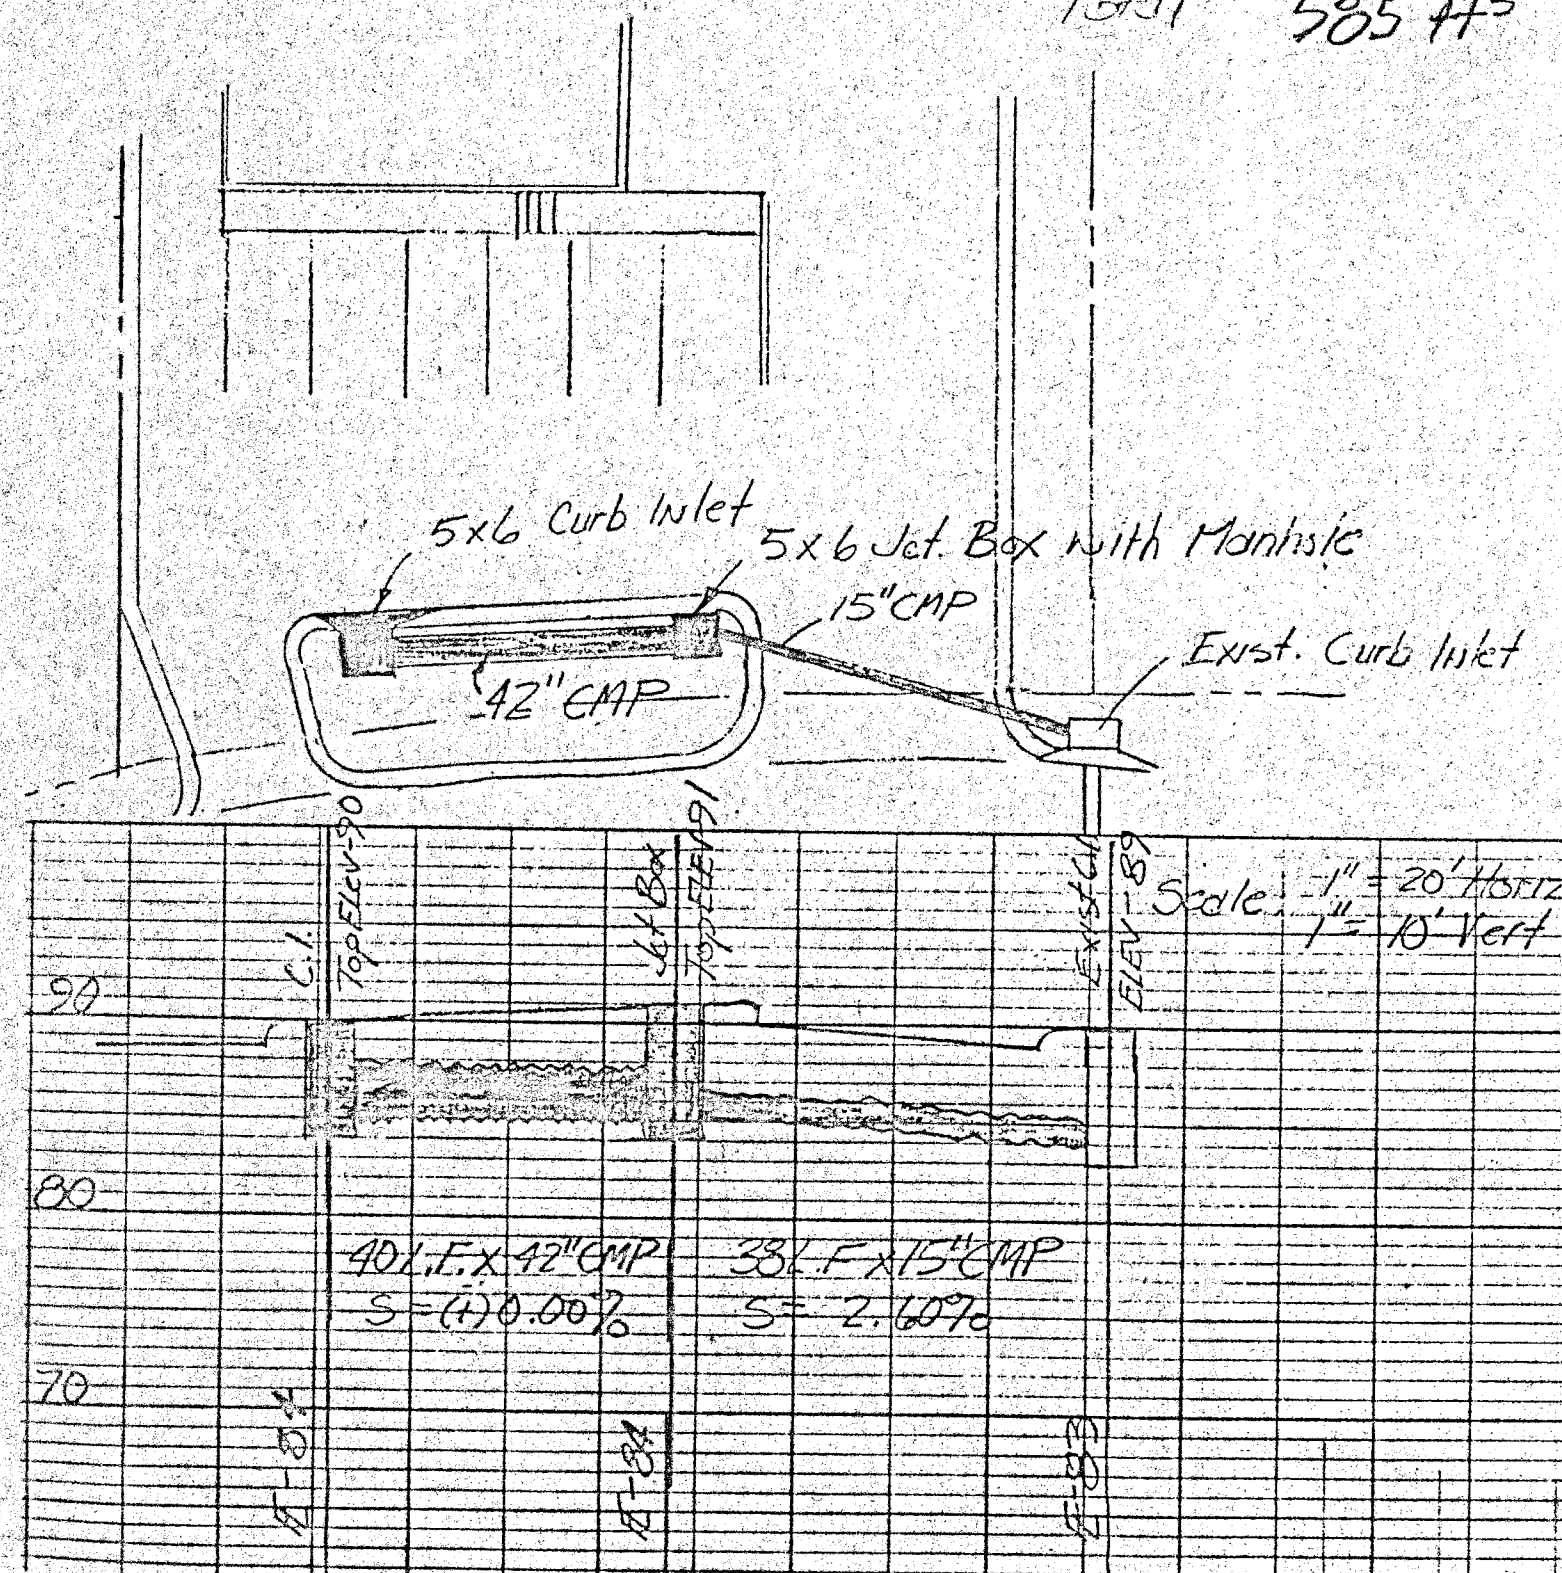 Total 585 ft³
5x6 Curb Inlet
5x6 Jct. Box with Manhole
15" CMP
Exist. Curb Inlet
42" CMP
C.I.
Top Elev-90
Jct Box
Top ELEV-91
Exist C.I.
ELEV-89
Scale: 1" = 20' Horiz
1" = 10' Vert
90
80
40 L.F. x 42" CMP
S = (+) 0.00%
38 L.F x 15" CMP
S = 2.60%
70
IE-84
IE-84
IE-83